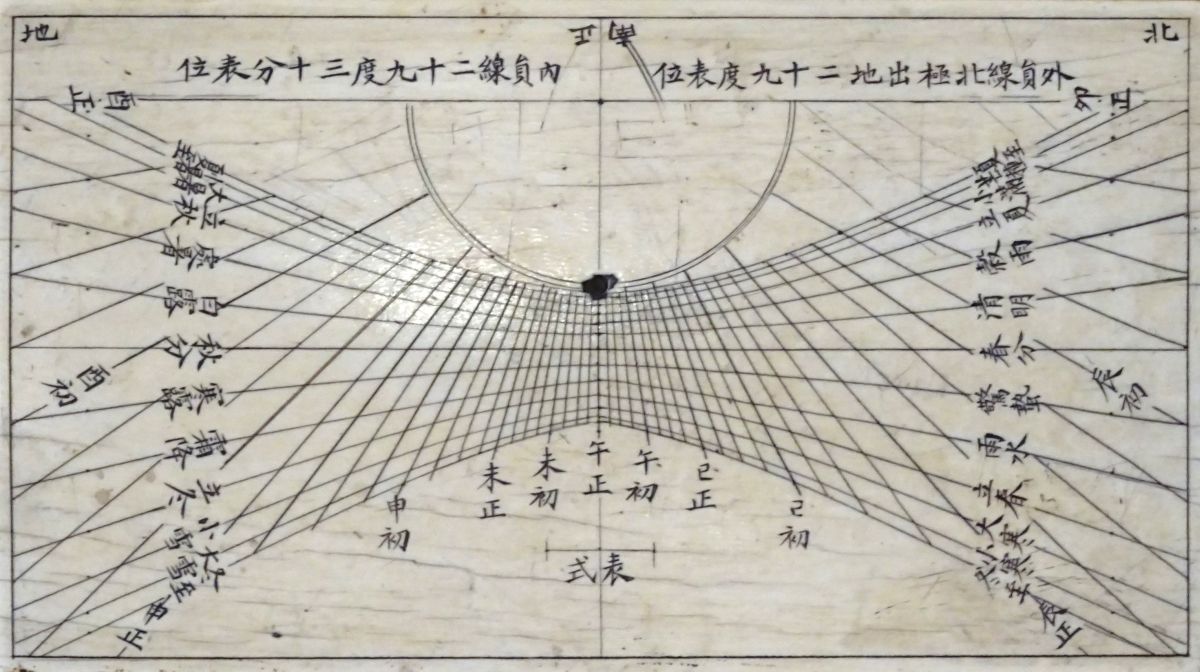 北
正南
地
外員線北極出地二十九度表位
內員線二十九度三十分表位
卯正
酉正
立夏
穀雨
清明
春分
驚蟄
雨水
立春
大寒
小寒
冬至
辰初
辰正
夏至
小暑
大暑
立秋
處暑
白露
秋分
寒露
霜降
立冬
小雪
大雪
冬至
酉初
申正
巳初
巳正
午初
午正
未初
未正
申初
表式